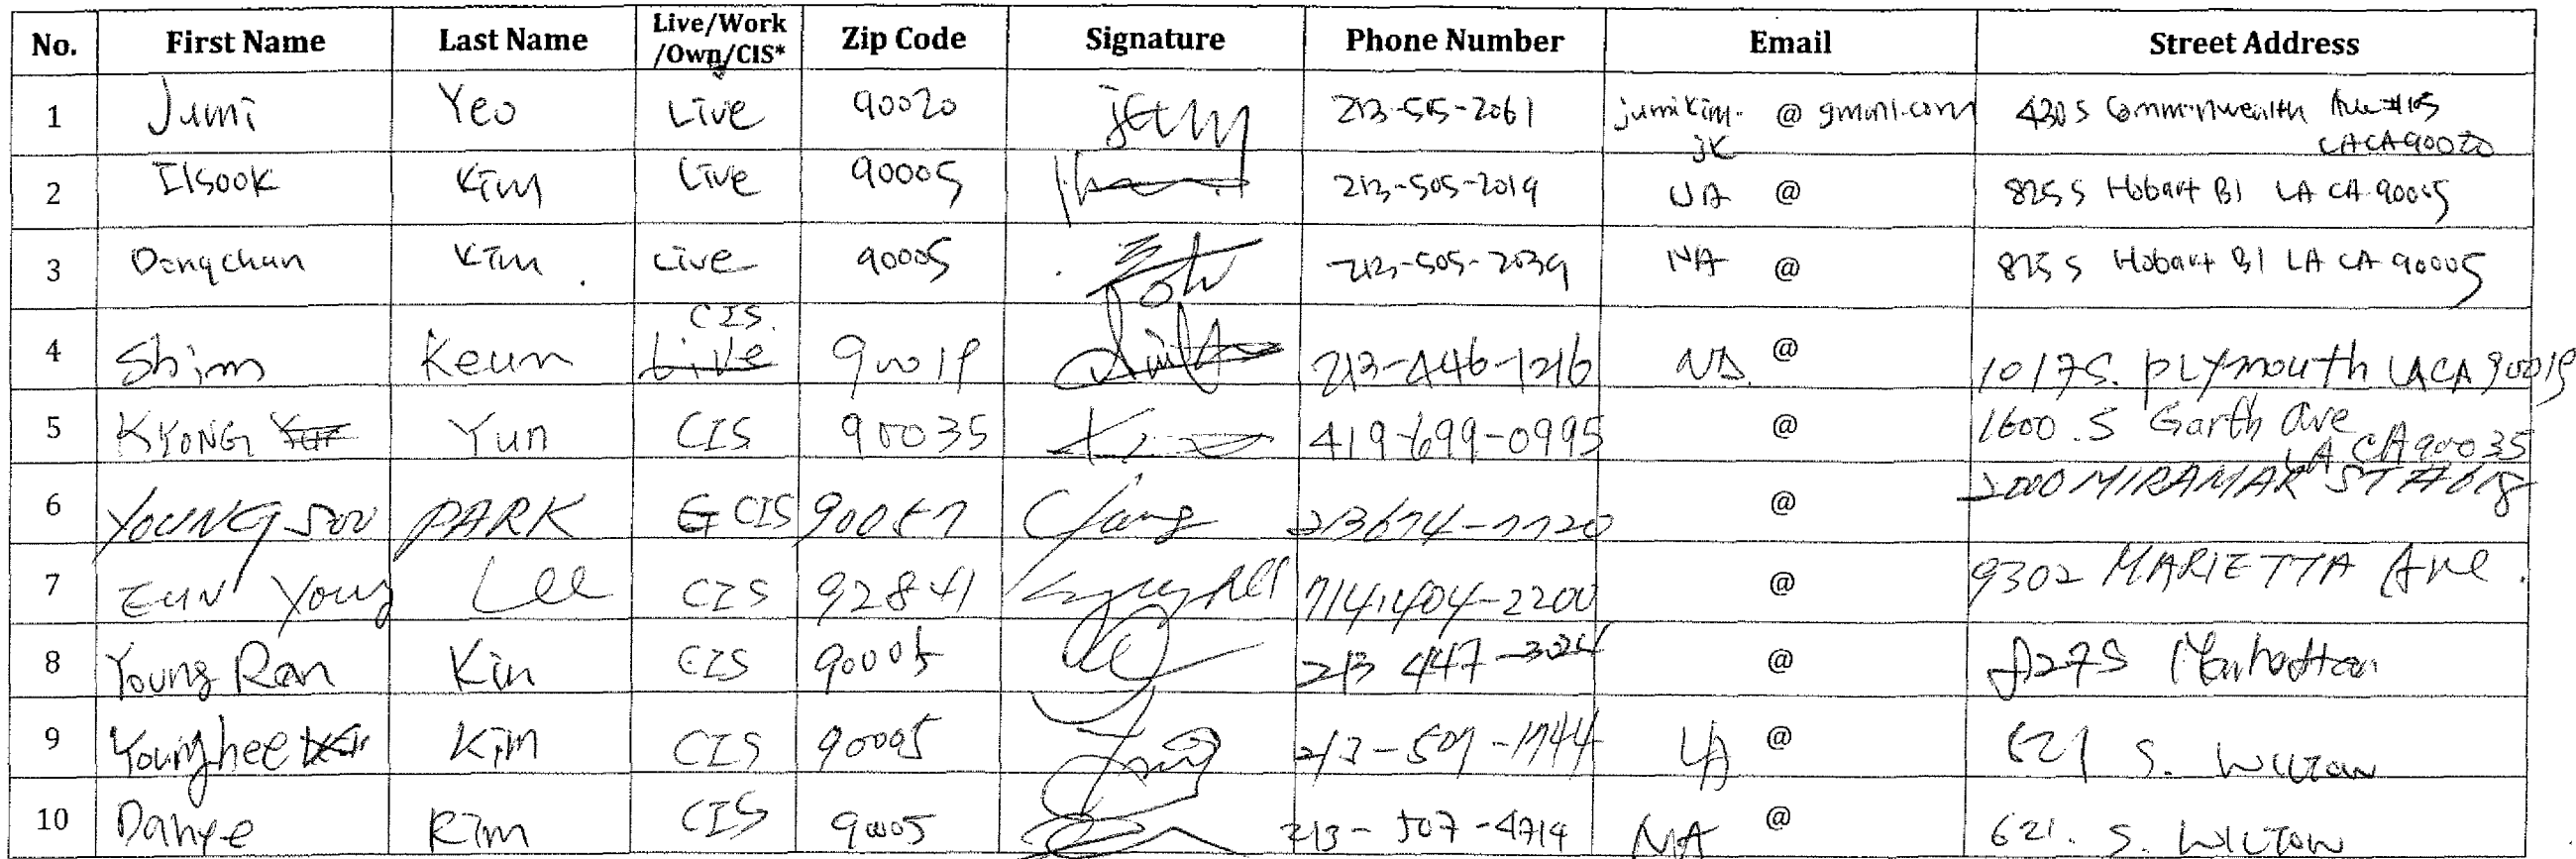 No. First Name Last Name Live/Work /Own/CIS* Zip Code Signature Phone Number Email Street Address
1 Jumi Yeo Live 90020 213-515-2061 jumikim.jk @ gmail.com 430 S Commonwealth Ave #105 LA CA 90020
2 Ilsook Kim Live 90005 213-505-2019 NA @ 825 S Hobart Bl LA CA 90005
3 Dongchan Kim Live 90005 213-505-2039 NA @ 825 S Hobart Bl LA CA 90005
4 Shim Keun CIS. Live 90019 213-446-1216 NA. @ 1017 S. Plymouth LA CA 90019
5 KYONG Yun CIS 90035 419-699-0995 @ 1600 . S Garth Ave LA CA 90035
6 YOUNG SOO PARK CIS 90057 213674-7720 @ 2000 MIRAMAR ST #618
7 EUN Young Lee CIS 92841 714,404-2200 @ 9302 MARIETTA Ave.
8 Young Ran Kim CIS 90005 213 447-3024 @ Manhattan
9 Younghee Kim CIS 90005 213-507-1744 @ 621 S. WILTON
10 Kim CIS 90005 213-507-4714 NA @ 621. S. WILTON